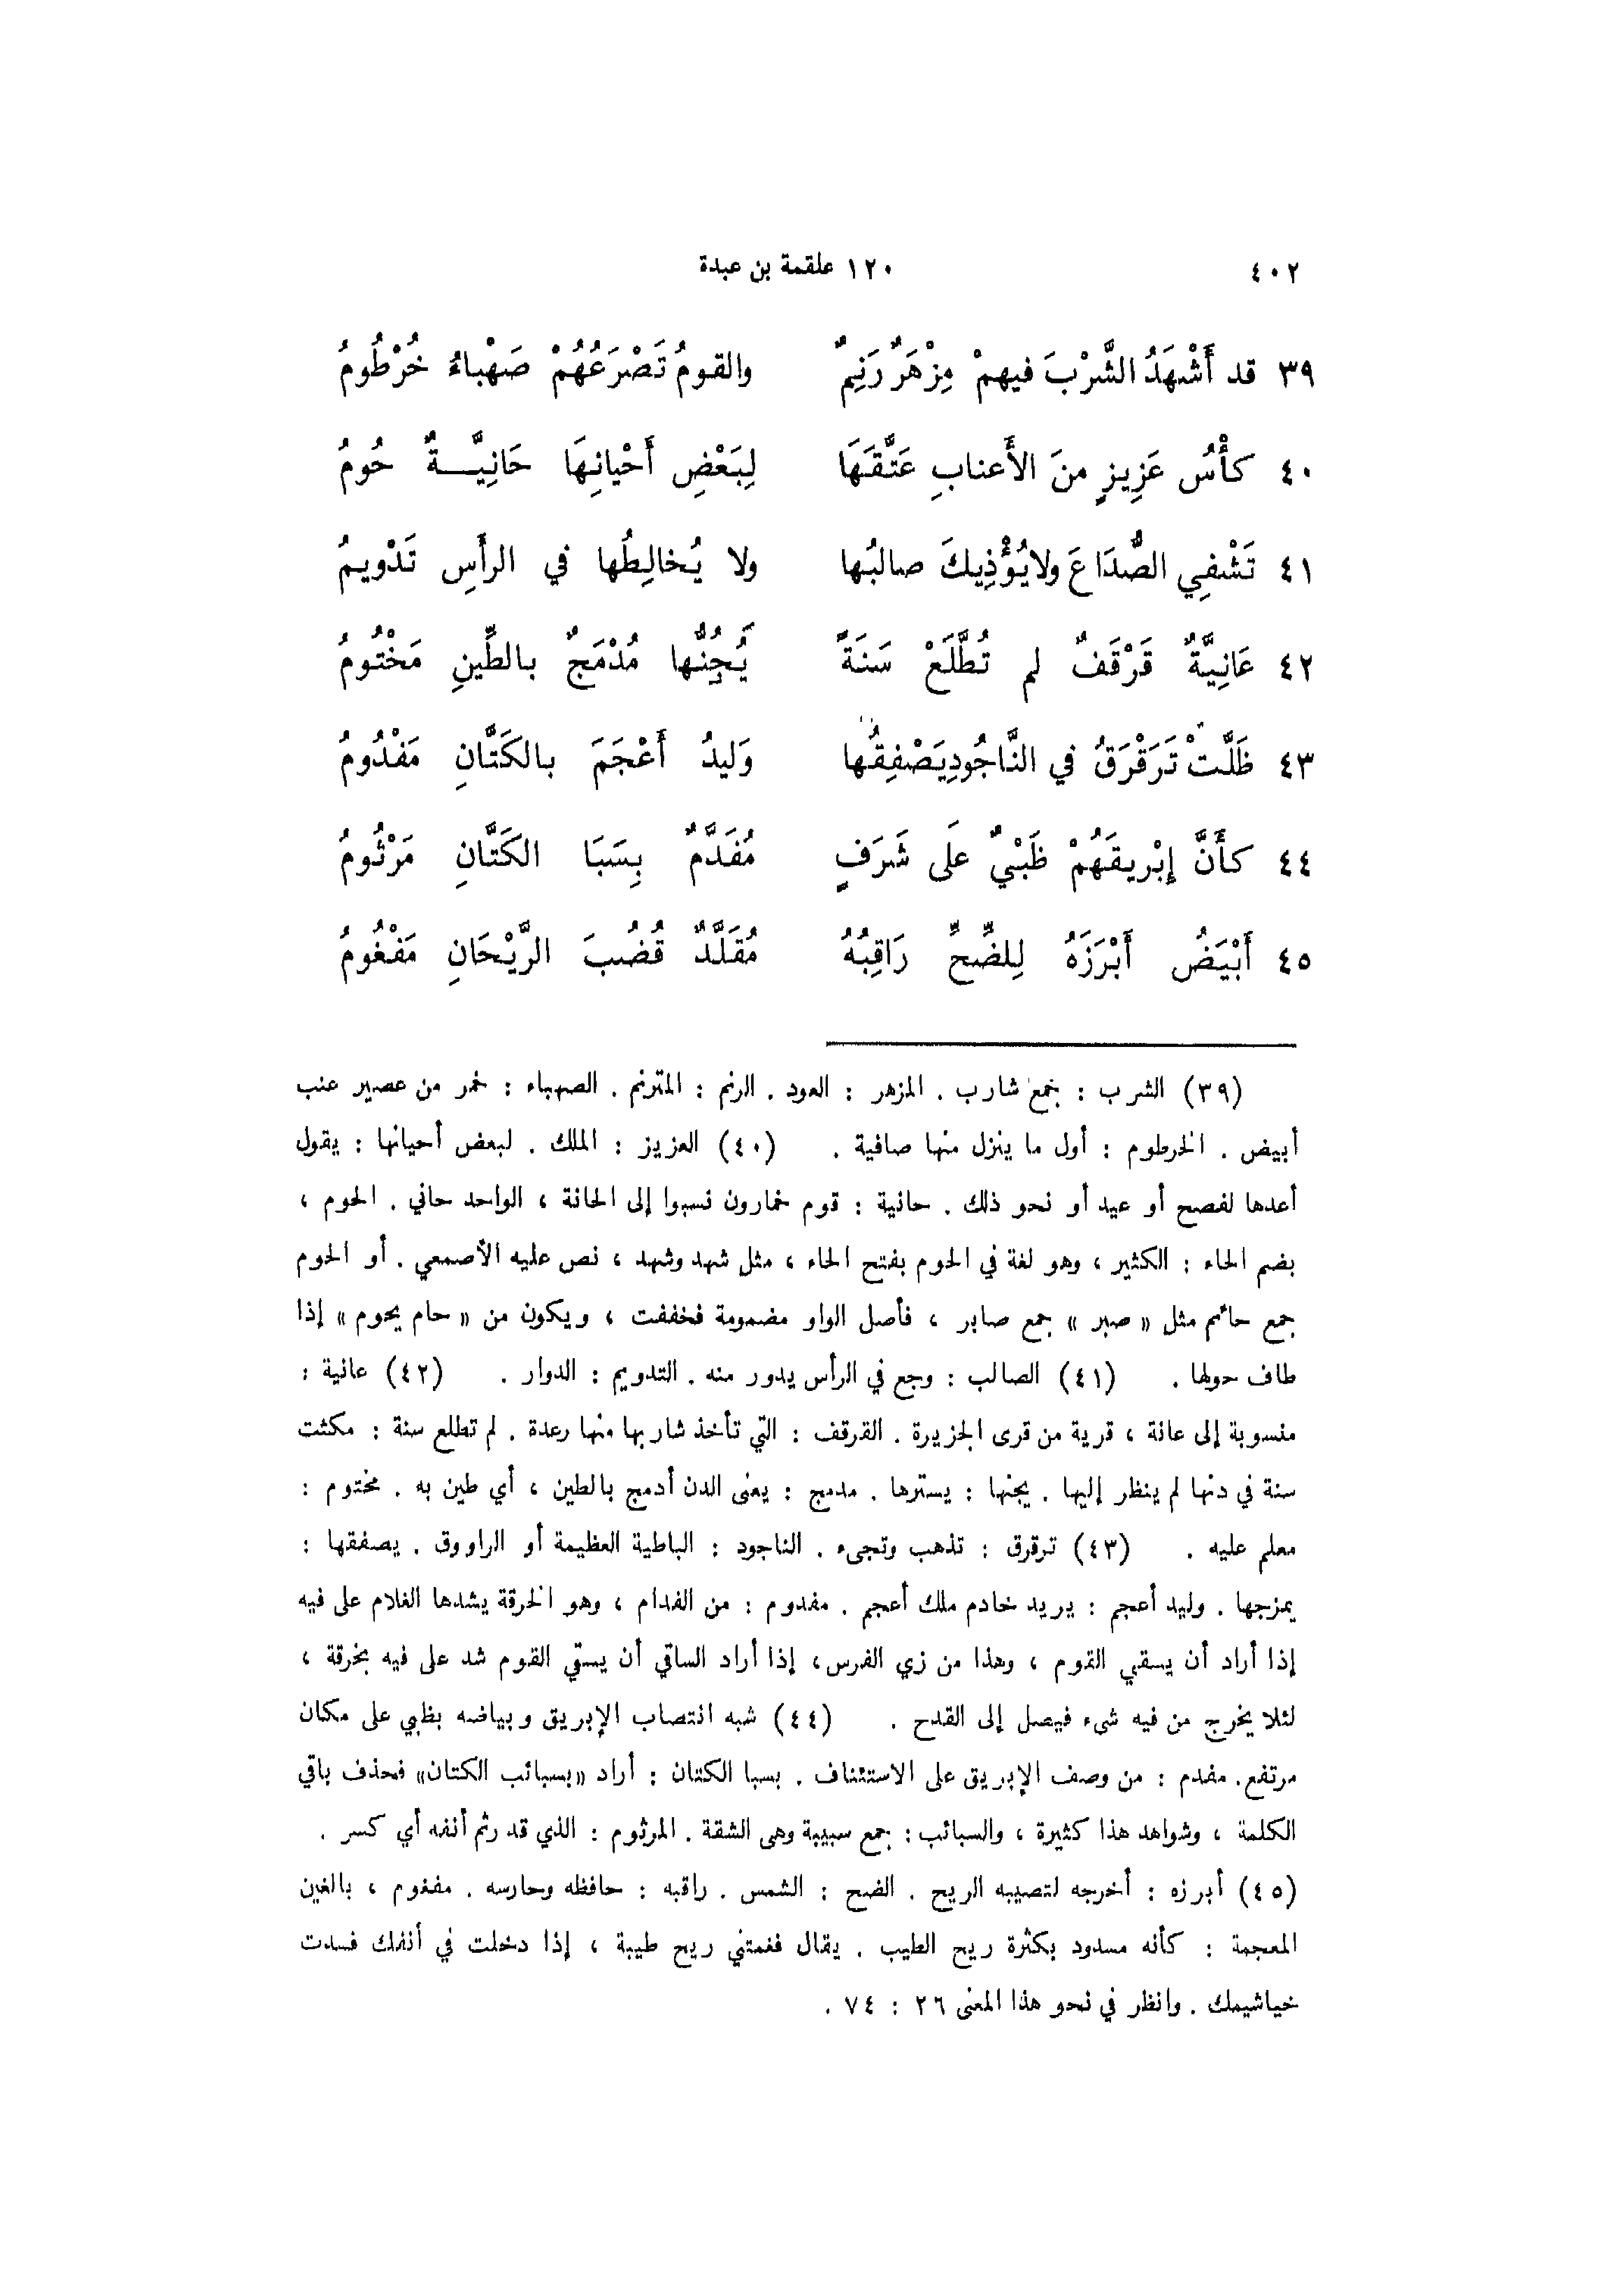 ٤٠٢ ١٢٠ علقمة بن عبدة
٣٩ قد أَشْهَدُ الشَّرْبَ فيهمْ مِزْهَرٌ رَنِمٌ والقومُ تَصْرَعُهُمْ صَهْباءُ خُرْطُومُ
٤٠ كأْسُ عَزِيزٍ منَ الأَعنابِ عَتَّقَهَا لِبَعْضِ أَحْيانِهَا حَانِيَّـــةٌ حُومُ
٤١ تَشْفِي الصُّدَاعَ ولا يُؤْذِيكَ صالبُها ولا يُخالِطُها في الرأَسِ تَدْويمُ
٤٢ عَانِيَّةٌ قَرْقَفٌ لم تُطَّلَعْ سَنَةً يُجِنُّها مُدْمَجٌ بالطِّينِ مَخْتُومُ
٤٣ ظَلَّتْ تَرَقْرَقُ في النَّاجُودِ يَصْفِقُها وَليدُ أَعْجَمَ بالكَتَّانِ مَفْدُومُ
٤٤ كأَنَّ إِبْريقَهُمْ ظَبْيٌ عَلَى شَرَفٍ مُفَدَّمٌ بِسَبَا الكَتَّانِ مَرْثُومُ
٤٥ أَبْيَضُ أَبْرَزَهُ لِلضِّحِّ رَاقِبُهُ مُقَلَّدٌ قُضُبَ الرَّيْحَانِ مَفْغُومُ
(٣٩) الشرب : جمع شارب . المزهر : العود . الرنم : المترنم . الصهباء : خمر من عصير عنب
أبيض . الخرطوم : أول ما ينزل منها صافية . (٤٠) العزيز : الملك . لبعض أحيانها : يقول
أعدها لفصح أو عيد أو نحو ذلك . حانية : قوم خمارون نسبوا إلى الحانة ، الواحد حاني . الحوم ،
بضم الحاء : الكثير ، وهو لغة في الحوم بفتح الحاء ، مثل شهد وشهد ، نص عليه الأصمعي . أو الحوم
جمع حائم مثل « صبر » جمع صابر ، فأصل الواو مضمومة فخففت ، ويكون من « حام يحوم » إذا
طاف حولها . (٤١) الصالب : وجع في الرأس يدور منه . التدويم : الدوار . (٤٢) عانية :
منسوبة إلى عانة ، قرية من قرى الجزيرة . القرقف : التي تأخذ شاربها منها رعدة . لم تطلع سنة : مكثت
سنة في دنها لم ينظر إليها . يجنها : يسترها . مدمج : يعنى الدن أدمج بالطين ، أي طين به . مختوم :
معلم عليه . (٤٣) ترقرق : تذهب وتجىء . الناجود : الباطية العظيمة أو الراووق . يصفقها :
يمزجها . وليد أعجم : يريد خادم ملك أعجم . مفدوم : من الفدام ، وهو الخرقة يشدها الغلام على فيه
إذا أراد أن يسقي القوم ، وهذا من زي الفرس، إذا أراد الساقي أن يستي القوم شد على فيه بخرقة ،
لئلا يخرج من فيه شىء فيصل إلى القدح . (٤٤) شبه انتصاب الإبريق وبياضه بظبي على مكان
مرتفع. مفدم : من وصف الإبريق على الاستئناف . بسبا الكتان : أراد «بسبائب الكتان» فحذف باقي
الكلمة ، وشواهد هذا كثيرة ، والسبائب : جمع سبيبة وهى الشقة . المرثوم : الذي قد رثم أنفه أي كسر .
(٤٥) أبرزه : أخرجه لتصيبه الريح . الضح : الشمس . راقبه : حافظه وحارسه . مفغوم ، بالغين
المعجمة : كأنه مسدود بكثرة ريح الطيب . يقال فغمتني ريح طيبة ، إذا دخلت في أنفك فسدت
خياشيمك . وانظر في نحو هذا المعنى ٢٦ : ٧٤ .